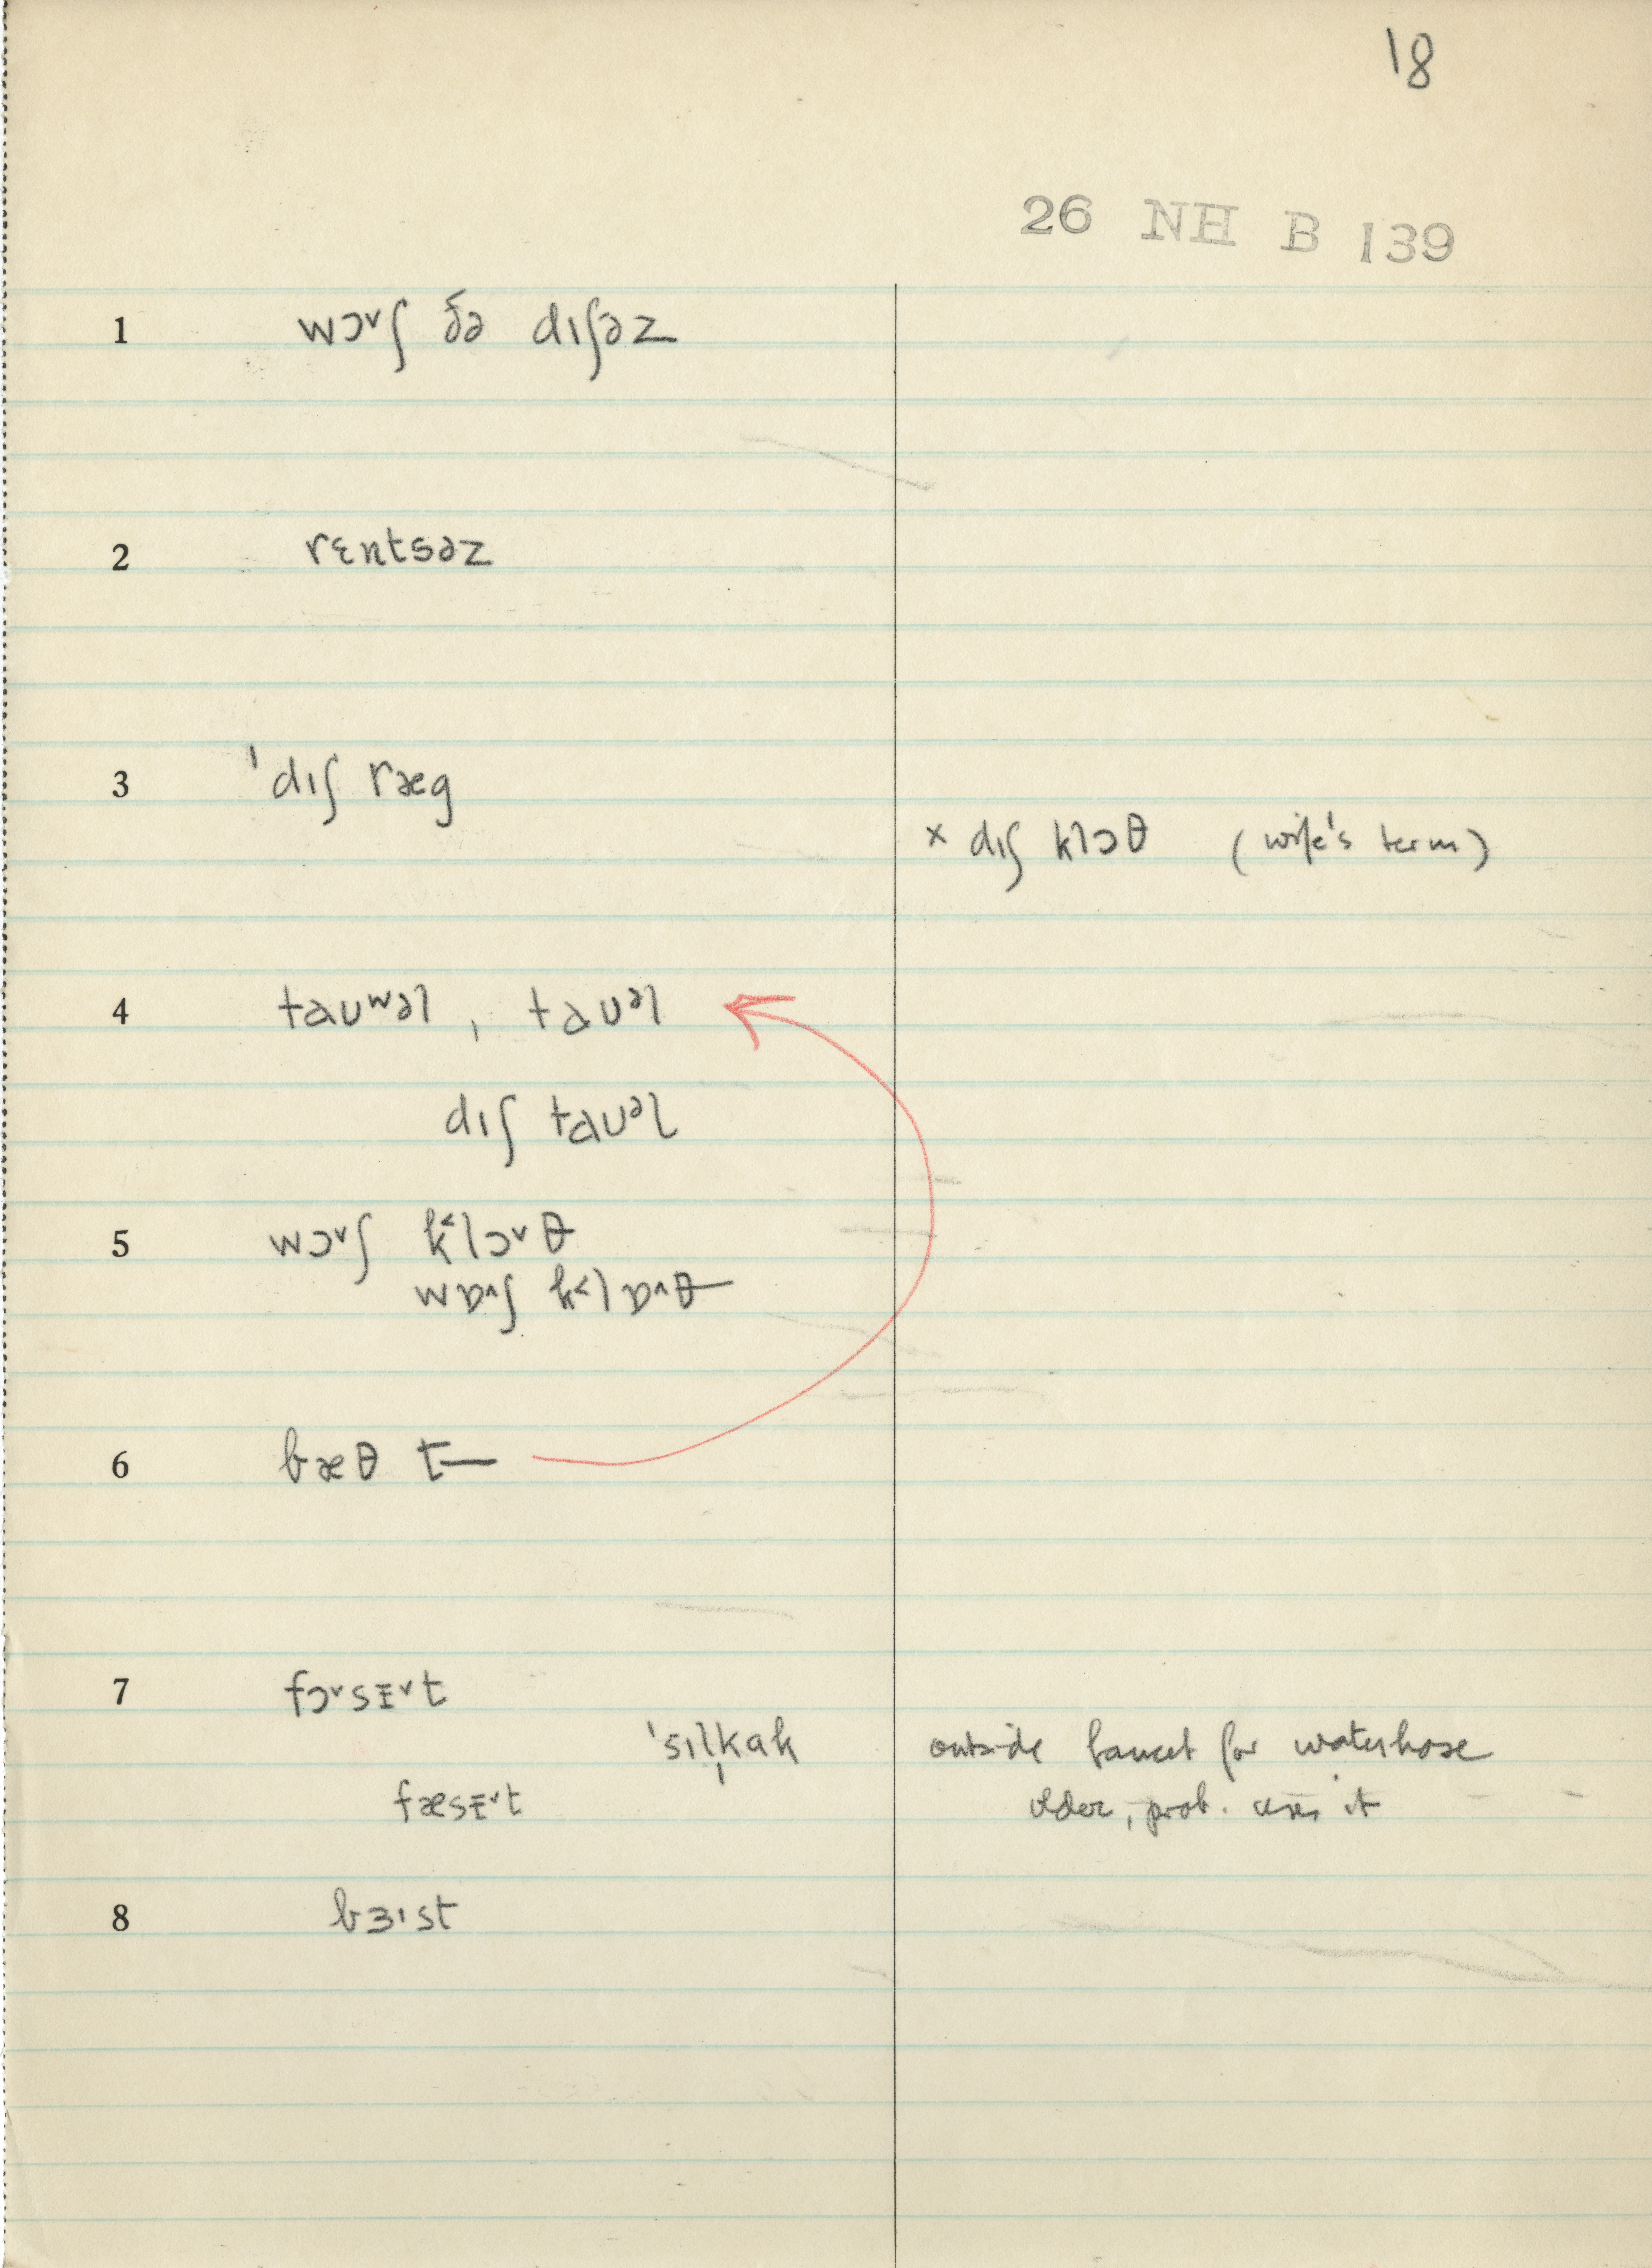 18
26 NH B 139
1 wɔ˅ʃ ðə dɪʃəz
2 rɛntsəz
3 ˈdɪʃ ræg
× dɪʃ klɔθ (wife's term)
4 taʊʷəl, taʊᵊl
dɪʃ taʊᵊl
5 wɔ˅ʃ k˂lɔ˅θ
wɒ˄ʃ k˂lɒ˄θ
6 bæθ t—
7 fɔ˅sɪ̵˅t
ˈsɪl̩kak outside faucet for waterhose
fæsɪ̵˅t older, prob. uses it
8 bɜɪst